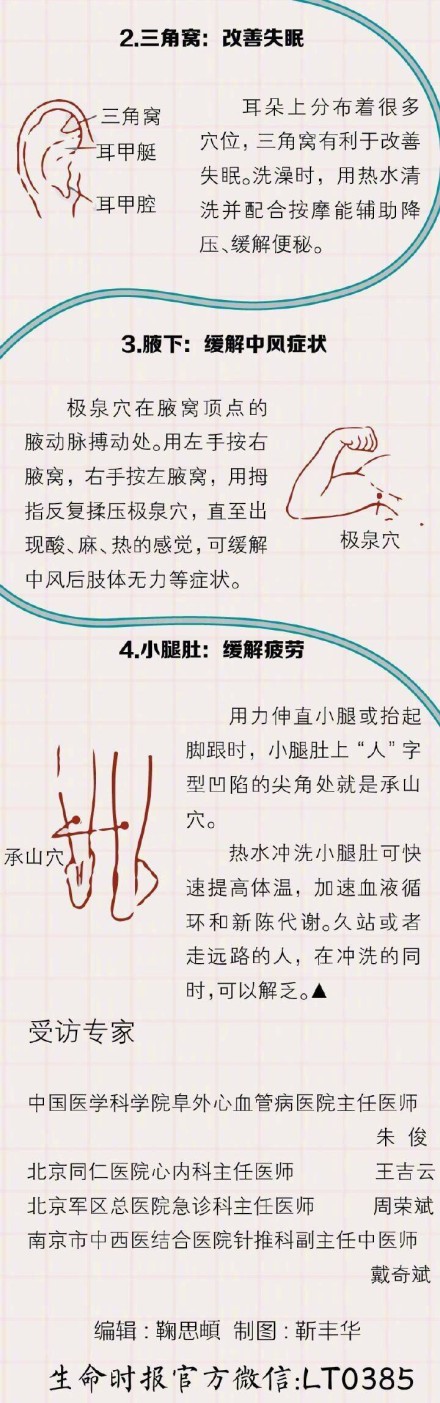 2.三角窝：改善失眠
三角窝
耳甲艇
耳甲腔
耳朵上分布着很多
穴位，三角窝有利于改善
失眠。洗澡时，用热水清
洗并配合按摩能辅助降
压、缓解便秘。
3.腋下：缓解中风症状
极泉穴在腋窝顶点的
腋动脉搏动处。用左手按右
腋窝，右手按左腋窝，用拇
指反复揉压极泉穴，直至出
现酸、麻、热的感觉，可缓解
中风后肢体无力等症状。
极泉穴
4.小腿肚：缓解疲劳
用力伸直小腿或抬起
脚跟时，小腿肚上“人”字
型凹陷的尖角处就是承山
穴。
承山穴
热水冲洗小腿肚可快
速提高体温，加速血液循
环和新陈代谢。久站或者
走远路的人，在冲洗的同
时，可以解乏。▲
受访专家
中国医学科学院阜外心血管病医院主任医师
朱 俊
北京同仁医院心内科主任医师 王吉云
北京军区总医院急诊科主任医师 周荣斌
南京市中西医结合医院针推科副主任中医师
戴奇斌
编辑：鞠思頔 制图：靳丰华
生命时报官方微信:LT0385